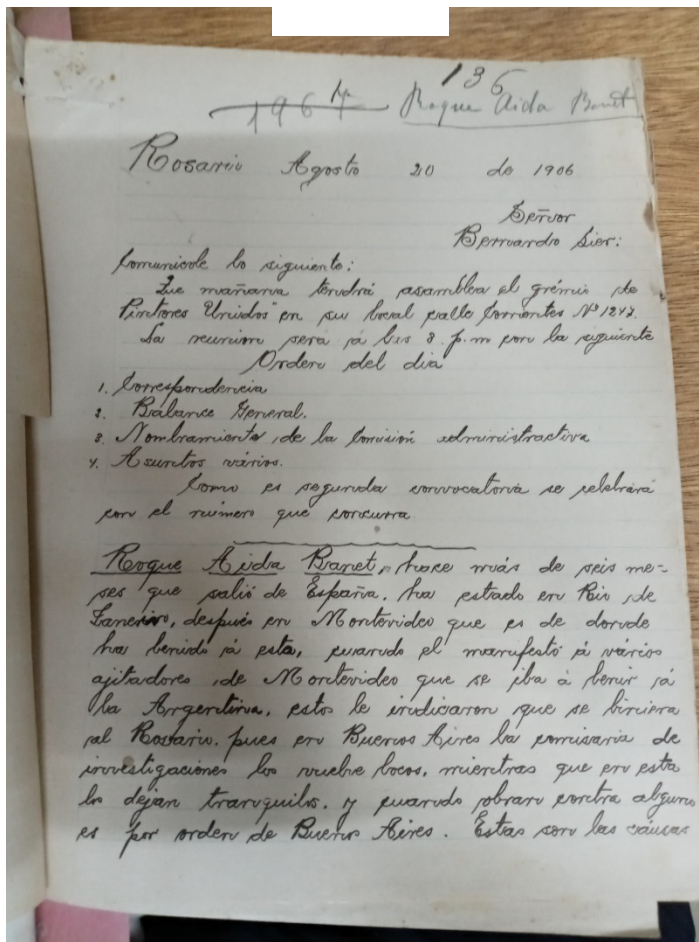 136
1964 Roque Aida Banet
Rosario Agosto 20 de 1906
Señor
Bernardo Sier:
Comunicole lo siguiente:
Que mañana tendrá asamblea el grémio de
Pintores Unidos" en su local calle Corrientes Nº 1247.
La reunion será á las 8 p.m con la siguiente
Orden del dia
1. Correspondencia
2. Balance General.
3. Nombramiento de la Comisión administractiva
4. Asuntos vários.
Como es segunda convocatoria se celebrará
con el número que concurra
Roque Aida Banet, hace más de seis me-
ses que salió de España, ha estado en Rio de
Janeriro, después en Montevideo que es de donde
ha benido á esta, cuando el manifestó á vários
ajitadores de Montevideo que se iba á benir á
la Argentina, estos le indicaron que se biniera
al Rosario, pues en Buenos Aires la comisaria de
investigaciones los vuelve locos, mientras que en esta
los dejan tranquilos, y cuando obran contra alguno
es por orden de Buenos Aires. Estas son las cáusas